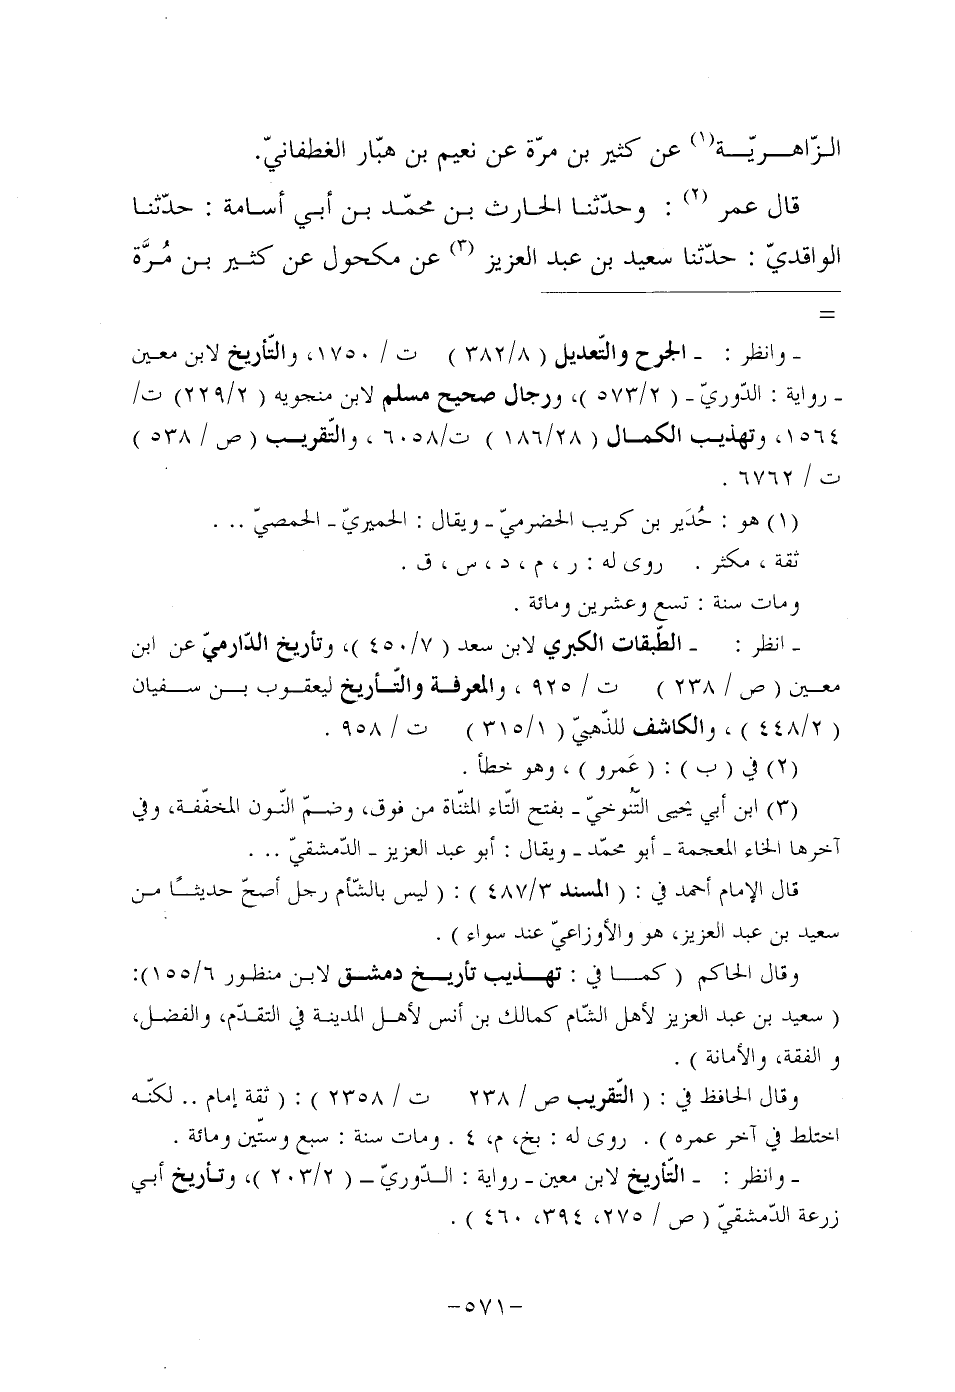 الـزّاهـــريّـــة(١) عن كثير بن مرّة عن نعيم بن هبّار الغطفانيّ.
قال عمر (٢) : وحدّثنا الحارث بـن محمّـد بـن أبـي أسـامة : حدّثنـا
الواقديّ : حدّثنا سعيد بن عبد العزيز (٣) عن مكحول عن كثـير بـن مُـرَّة
=
ـ وانظر : ـ الجرح والتّعديل ( ٣٨٢/٨ ) ت / ١٧٥٠، والتّأريخ لابن معـين
ـ رواية : الدّوريّ ـ ( ٥٧٣/٢ )، ورجال صحيح مسلم لابن منجويه ( ٢٢٩/٢) ت/
١٥٦٤، وتهذيب الكمـال ( ١٨٦/٢٨ ) ت/٦٠٥٨ ، والتّقريـب ( ص / ٥٣٨ )
ت / ٦٧٦٢ .
(١) هو : حُدَير بن كريب الحضرميّ ـ ويقال : الحميريّ ـ الحمصيّ .. .
ثقة ، مكثر . روى له : ر ، م ، د ، س ، ق .
ومات سنة : تسع وعشرين ومائة .
ـ انظر : ـ الطّبقات الكبري لابن سعد ( ٤٥٠/٧ )، وتأريخ الدّارميّ عن ابن
معـين ( ص / ٢٣٨ ) ت / ٩٢٥ ، والمعرفـة والتّـأريخ ليعقـوب بـن سـفيان
( ٤٤٨/٢ ) ، والكاشف للذّهبيّ ( ٣١٥/١ ) ت / ٩٥٨ .
(٢) في ( ب ) : ( عَمرو ) ، وهو خطأ .
(٣) ابن أبي يحيى التّنُوخيّ ـ بفتح التّاء المثنّاة من فوق، وضـمّ النّون المخفّفة، وفي
آخرها الخاء المعجمة ـ أبو محمّد ـ ويقال : أبو عبد العزيز ـ الدّمشقيّ .. .
قال الإمام أحمد في : ( المسند ٤٨٧/٣ ) : ( ليس بالشّأم رجل أصحّ حديثـًا مـن
سعيد بن عبد العزيز، هو والأوزاعيّ عند سواء ) .
وقال الحاكم ( كمـا في : تهـذيب تأريـخ دمشـق لابـن منظـور ١٥٥/٦):
( سعيد بن عبد العزيز لأهل الشّام كمالك بن أنس لأهـل المدينـة في التقـدّم، والفضـل،
و الفقة، والأمانة ) .
وقال الحافظ في : ( التّقريب ص / ٢٣٨ ت / ٢٣٥٨ ) : ( ثقة إمام .. لكنّـه
اختلط في آخر عمره ) . روى له : بخ، م، ٤ . ومات سنة : سبع وستّين ومائة .
ـ وانظر : ـ التّأريخ لابن معين ـ رواية : الـدّوريّ ــ ( ٢٠٣/٢ )، وتـأريخ أبـي
زرعة الدّمشقيّ ( ص / ٢٧٥، ٣٩٤، ٤٦٠ ) .
-٥٧١-